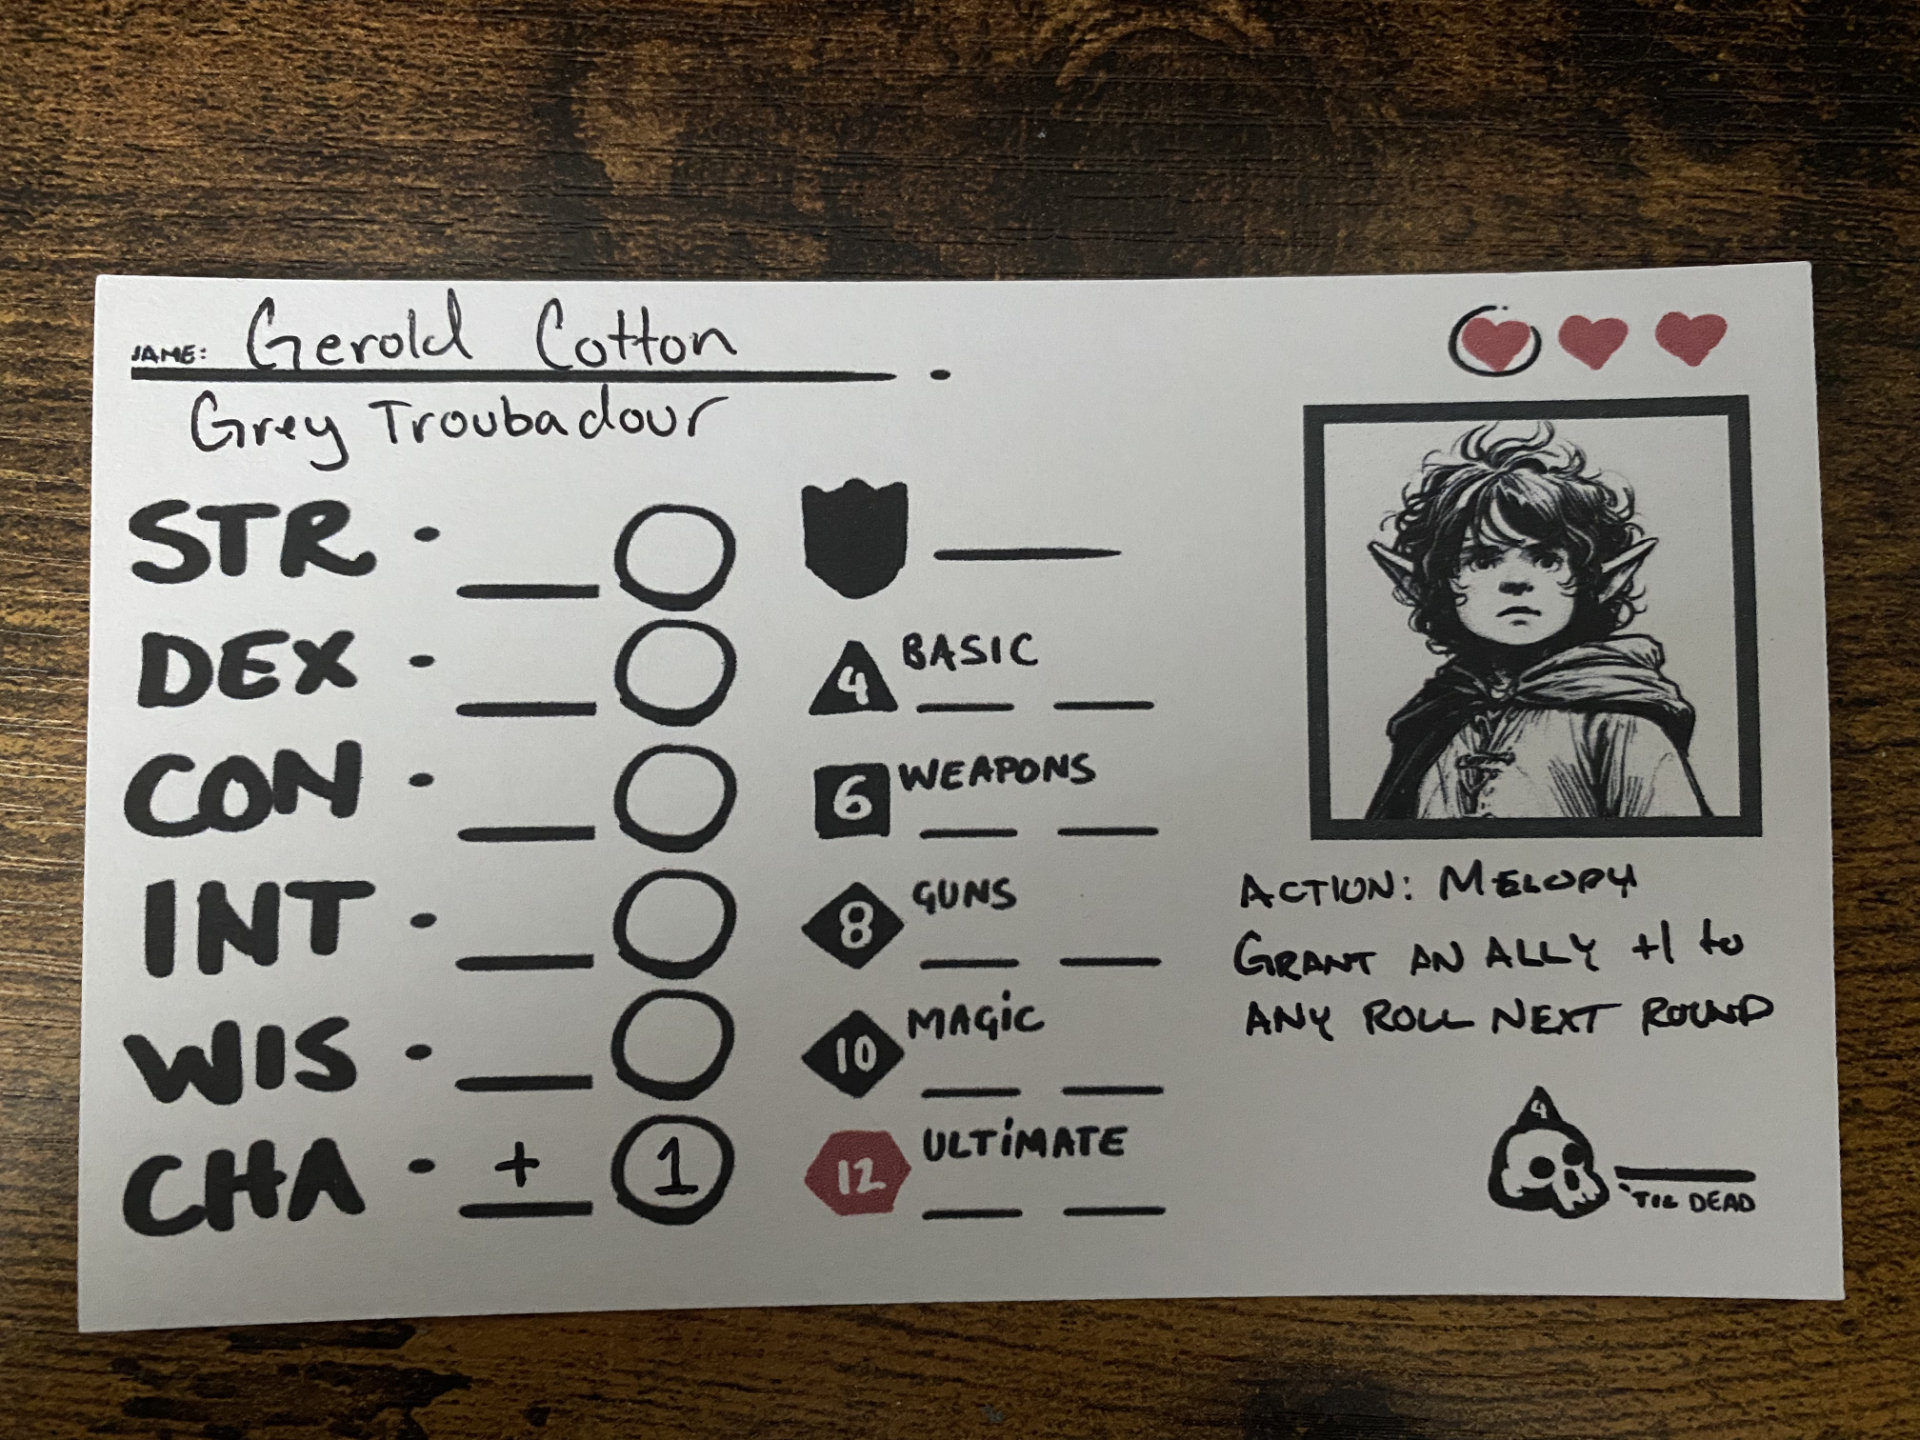 NAME: Gerold Cotton
Grey Troubadour
STR
DEX
CON
INT
WIS
CHA + 1
4 BASIC
6 WEAPONS
8 GUNS
10 MAGIC
12 ULTIMATE
ACTION: MELODY
GRANT AN ALLY +1 to
ANY ROLL NEXT ROUND
4
'TIL DEAD